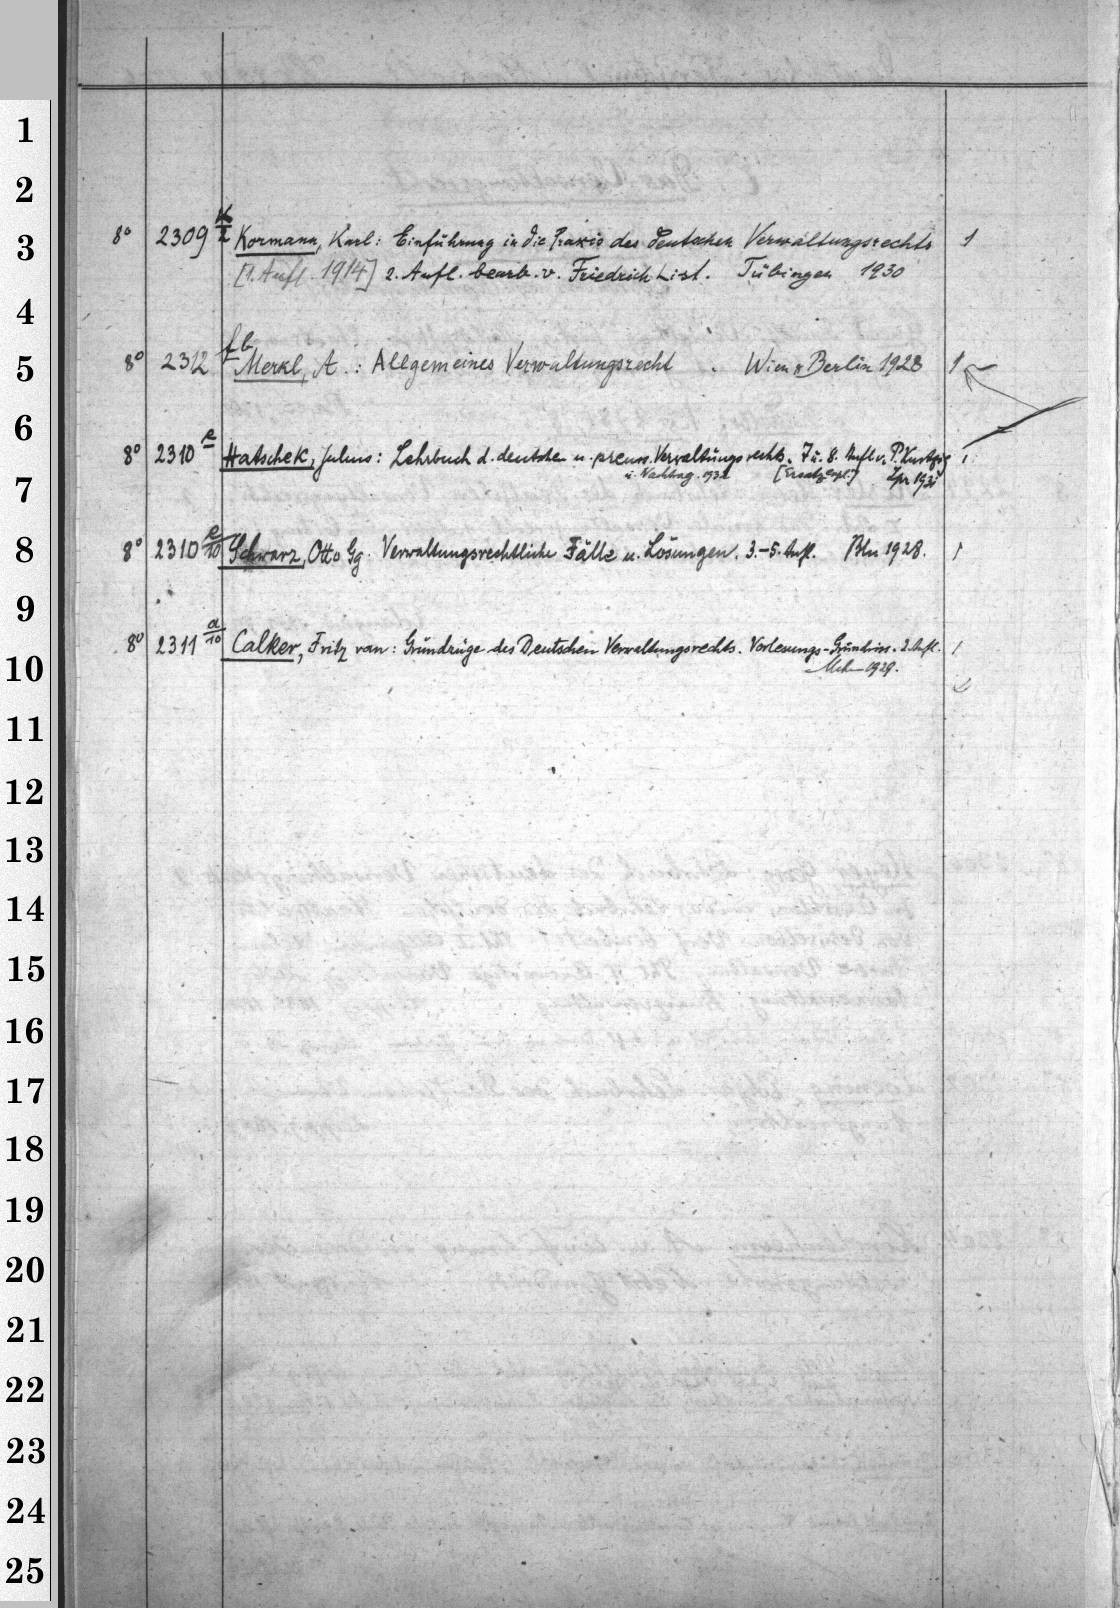 1
2
3
4
5
6
7
8
9
10
11
12
13
14
15
16
17
18
19
20
21
22
23
24
25
8° 2309 K/2 Kormann, Karl: Einführung in die Praxis des deutschen Verwaltungsrechts 1
[1. Aufl. 1914] 2. Aufl. bearb. v. Friedrich List. Tübingen 1930
8° 2312 fb Merkl, A.: Allgemeines Verwaltungsrecht. Wien & Berlin 1928 1
8° 2310 e Hatschek, Julius: Lehrbuch d. deutschen u. preuss. Verwaltungsrechts. 7 u. 8. Aufl. v. P. Kurtzig 1
u. Nachtrag. 1932 [Ersatzexpl.] Lpz 1931
8° 2310 e/10 Schwarz, Otto Gg. Verwaltungsrechtliche Fälle u. Lösungen. 3.-5. Aufl. Bln 1928. 1
8° 2311 a/10 Calker, Fritz van: Grundzüge des Deutschen Verwaltungsrechts. Vorlesungs-Grundriss. 2. Aufl. 1
Mchn 1929.